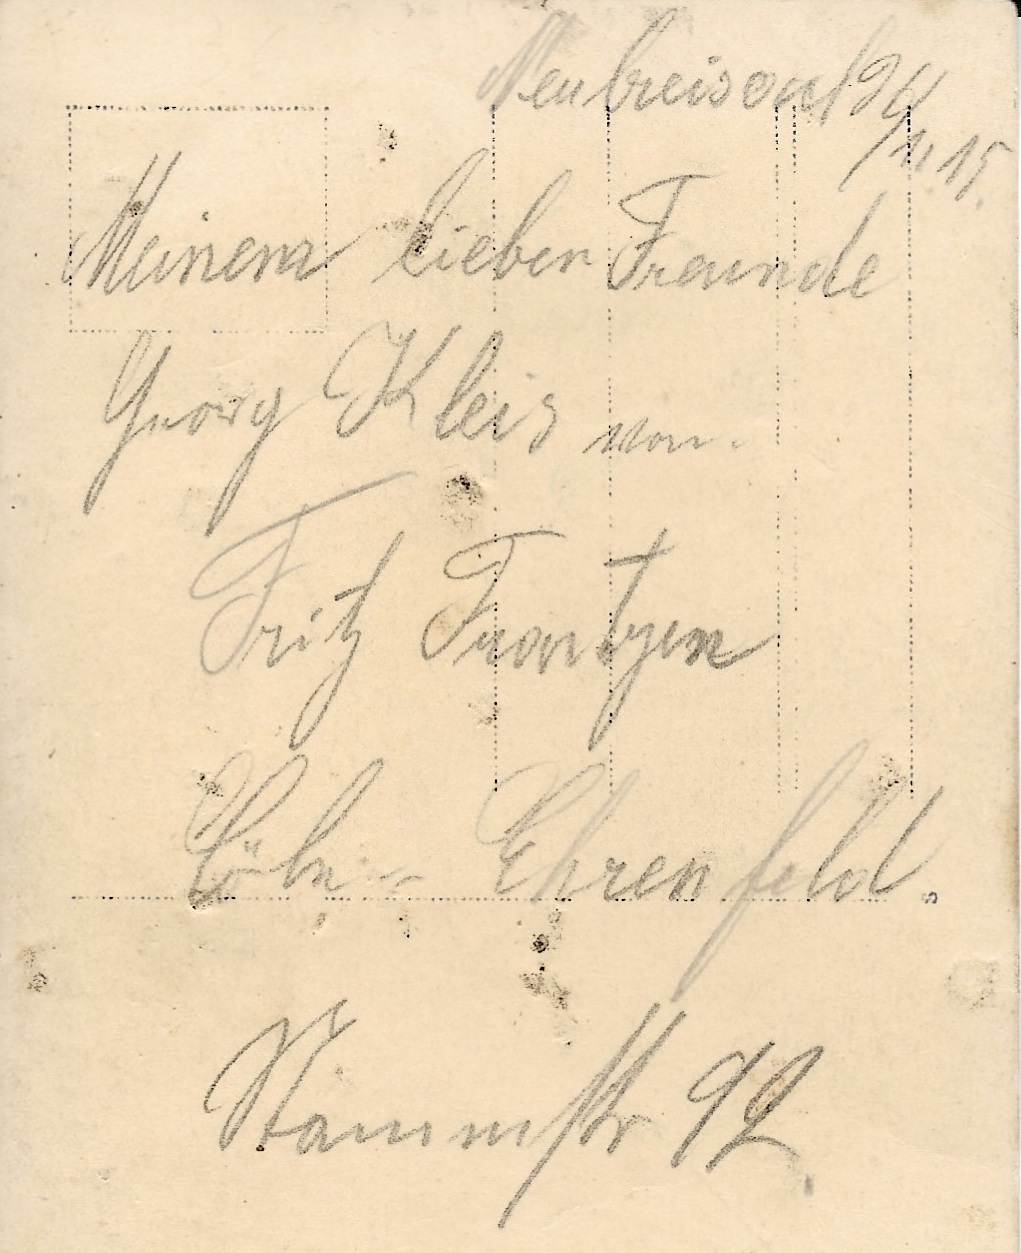 Neubreisach 26/11. 15.
Meinem lieben Freunde
Georg Kleis von
Fritz Frantzen
Cöln - Ehrenfeld
Stammstr 92